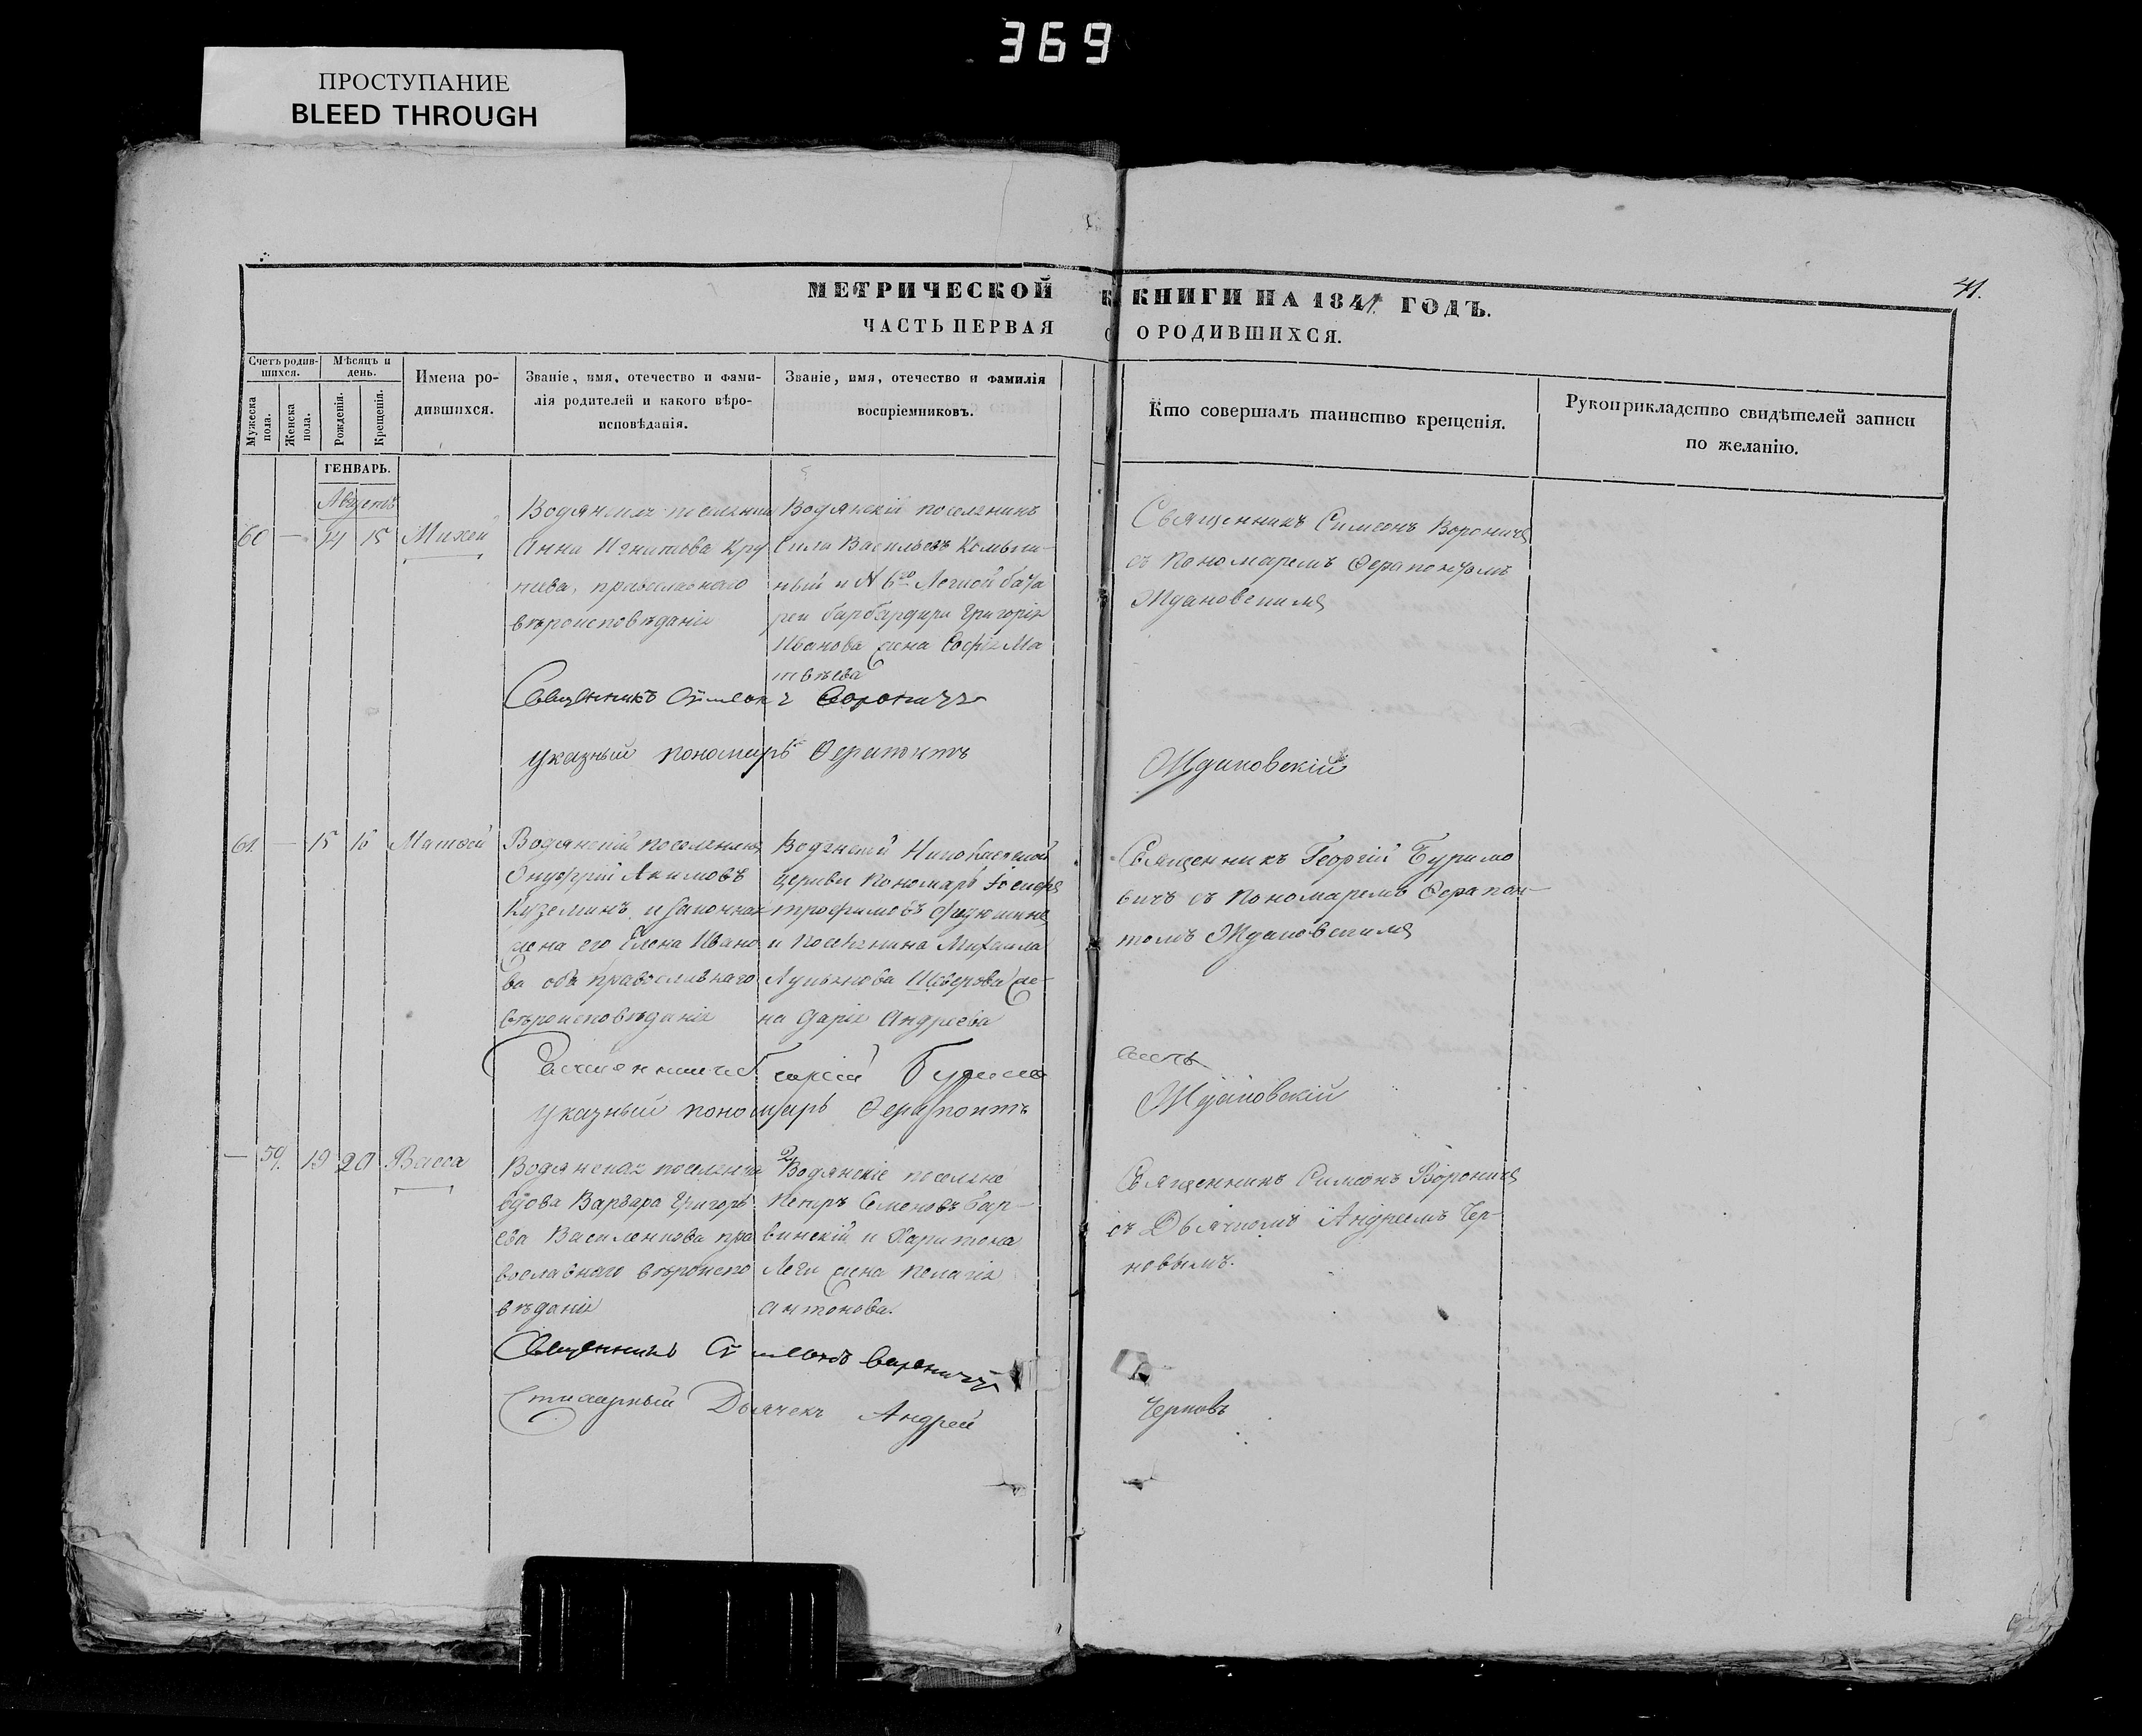 369
ПРОСТУПАНИЕ
BLEED THROUGH
71.
МЕТРИЧЕСКОЙ КНИГИ НА 1841 ГОДЪ.
ЧАСТЬ ПЕРВАЯ О РОДИВШИХСЯ.
Счетъ родив-
шихся.
Мужеска
пола.
Женска
пола.
Мѣсяцъ и
день.
Рожденія.
Крещенія.
Имена ро-
дившихся.
Званіе, имя, отечество и фами-
лія родителей и какого вѣро-
исповѣданія.
Званіе, имя, отечество и фамилія
воспріемниковъ.
Кто совершалъ таинство крещенія.
Рукоприкладство свидѣтелей записи
по желанію.
ГЕНВАРЬ.
Августъ
60 — 14 15 Михей
Анна Игнатова
православнаго
вѣроисповѣданія
Водянскій поселянинъ
Сила Васильевъ
ный и № 6го Легкой бата
реи Григорія
Иванова жена Софія Ма
твѣева
Священникъ Симеонъ Вороничъ
съ Пономаремъ Ферапонтомъ
Ждановскимъ
Священникъ Симеонъ Вороничъ
указный пономарь Ферапонтъ Ждановскій
61. — 15 16 Матѳей
Водянскій поселянинъ
Онуфрій Акимовъ
Кузьминъ и законная
жена его Елена Ивано
ва оба православнаго
вѣроисповѣданія
Водянской Николаевской
церкви Пономарь Іосифъ
Трофимовъ
и поселянина Михаила
Лукьянова Шеверова же-
на Дарія Андреева
Священникъ Георгій Буримо
вичъ съ Пономаремъ Ферапон-
томъ Ждановскимъ
Священникъ Георгій Буримо
указный пономарь Ферапонтъ Ждановскій
— 59. 19 20 Васса
Водянская поселянка
вдова Варвара Григорь
ева Василенкова пра
вославнаго вѣроиспо
вѣданія
Водянскіе поселяне
Петръ Семеновъ Бар-
винскій и Харитона
жена Пелагія
Антонова.
Священникъ Симеонъ Вороничъ
съ Дьячкомъ Андреемъ Чер-
новымъ.
Священникъ Симеонъ Вороничъ
Стихарный Дьячекъ Андрей Черновъ